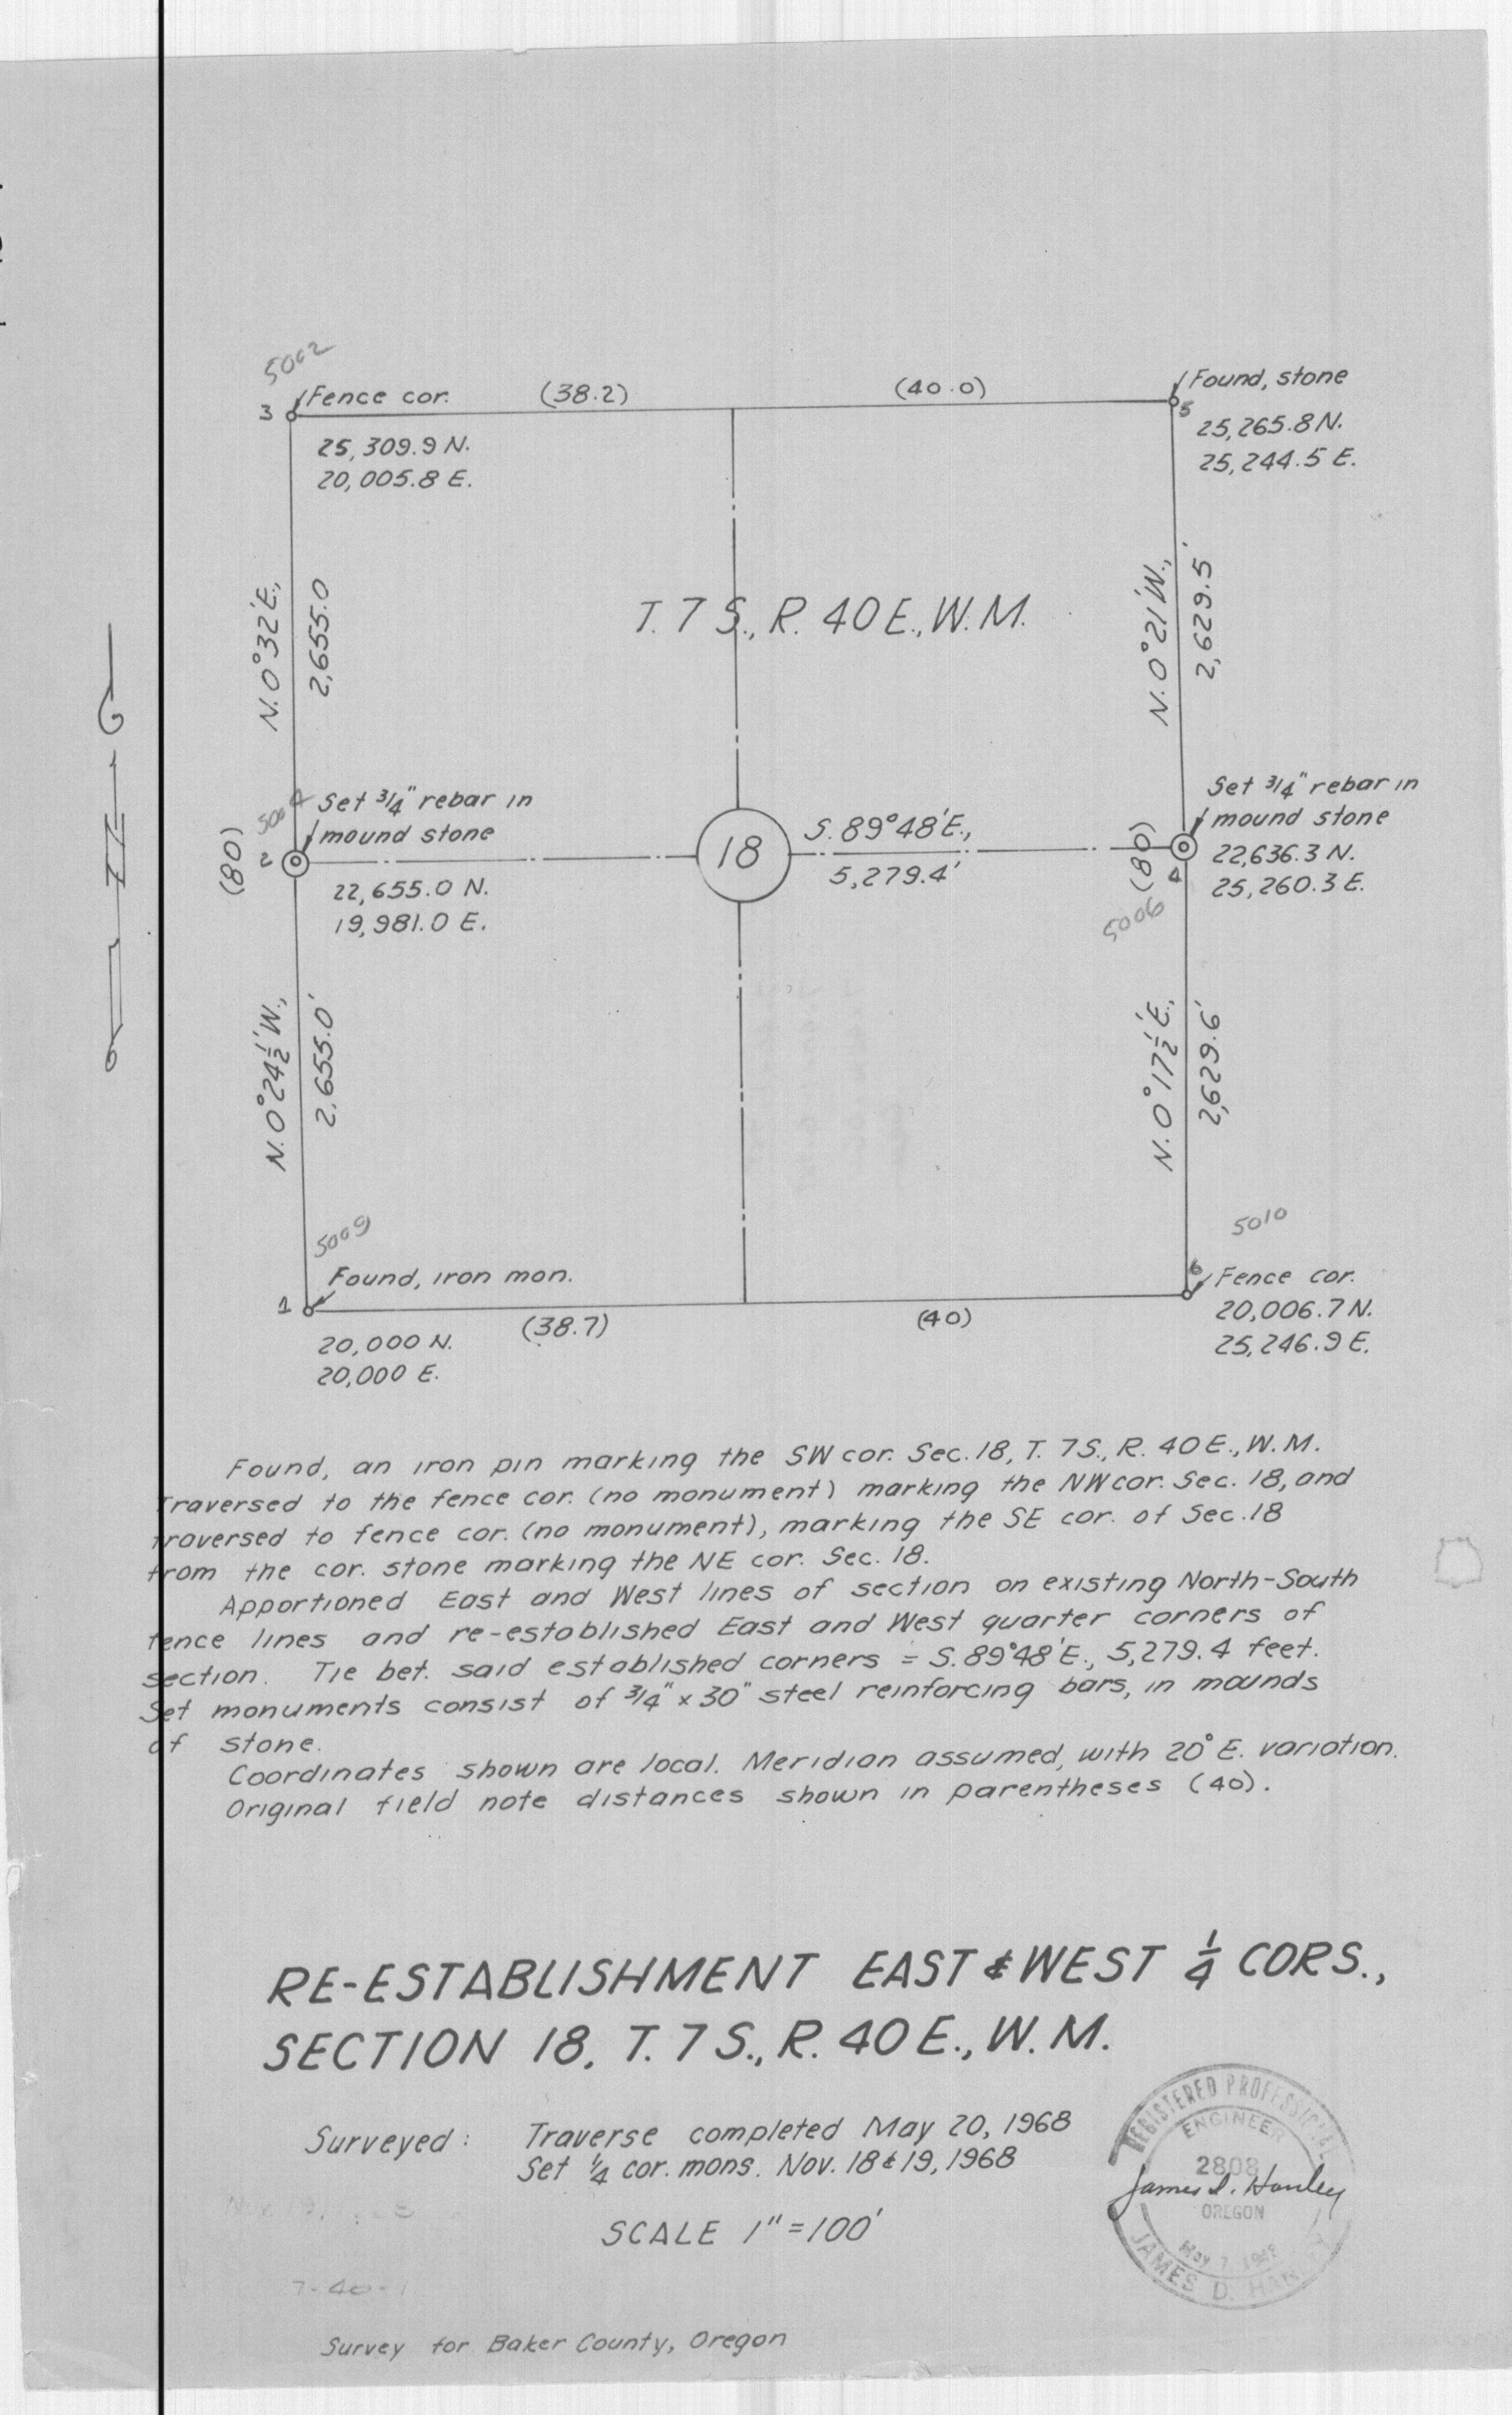 5002
3
Fence cor.
(38.2)
(40.0)
Found, stone
5
25,309.9 N.
20,005.8 E.
25,265.8 N.
25,244.5 E.
N. 0°32'E.,
2,655.0
T. 7 S., R. 40 E., W. M.
N. 0°21'W.,
2,629.5'
Set 3/4" rebar in
mound stone
(80)
2
22,655.0 N.
19,981.0 E.
18
S. 89°48'E.,
5,279.4'
Set 3/4" rebar in
mound stone
(80)
4
22,636.3 N.
25,260.3 E.
5006
N. 0°24½'W.,
2,655.0'
N. 0°17½'E.,
2,629.6'
5009
Found, iron mon.
1
20,000 N.
20,000 E.
(38.7)
(40)
5010
6
Fence cor.
20,006.7 N.
25,246.9 E.
Found, an iron pin marking the SW cor. Sec. 18, T. 7 S., R. 40 E., W. M.
Traversed to the fence cor. (no monument) marking the NW cor. Sec. 18, and
traversed to fence cor. (no monument), marking the SE cor. of Sec. 18
from the cor. stone marking the NE cor. Sec. 18.
Apportioned East and West lines of section on existing North-South
fence lines and re-established East and West quarter corners of
section. Tie bet. said established corners = S. 89°48'E., 5,279.4 feet.
Set monuments consist of 3/4" x 30" steel reinforcing bars, in mounds
of stone.
Coordinates shown are local. Meridian assumed, with 20° E. variation.
Original field note distances shown in parentheses (40).
RE-ESTABLISHMENT EAST & WEST 1/4 CORS.,
SECTION 18, T. 7 S., R. 40 E., W. M.
Surveyed: Traverse completed May 20, 1968
Set 1/4 cor. mons. Nov. 18 & 19, 1968
SCALE 1" = 100'
REGISTERED PROFESSIONAL
ENGINEER
2808
James D. Hanley
OREGON
May 7
JAMES D. HANLEY
7-40-1
Survey for Baker County, Oregon